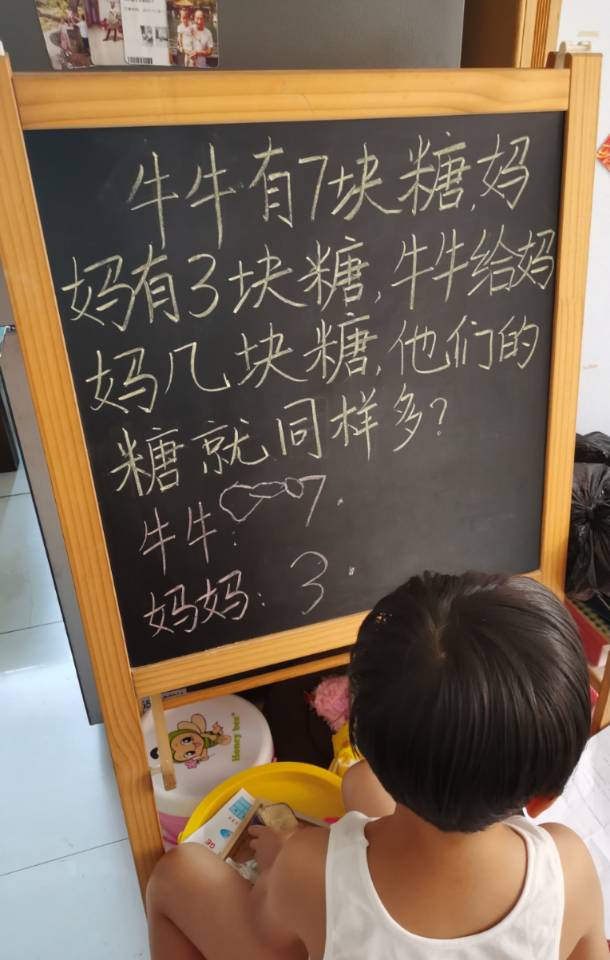 牛牛有7块糖,妈
妈有3块糖,牛牛给妈
妈几块糖,他们的
糖就同样多?
牛牛: 7.
妈妈: 3.
Honey bee
GE